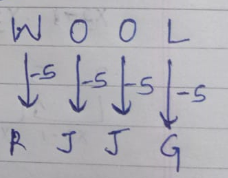 W O O L
-5 -5 -5 -5
R J J G